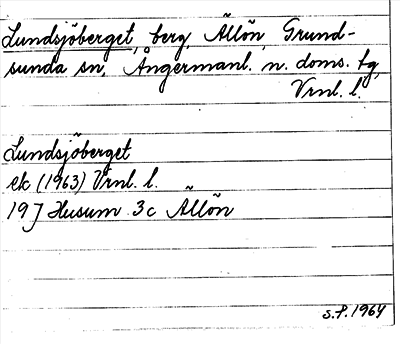 Lundsjöberget, berg, Ällön, Grund-
sunda sn, Ångermanl. n. doms. tg,
Vrnl. l.
Lundsjöberget
ek (1963) Vrnl. l.
19 J Husum 3c Ällön
S.P. 1964